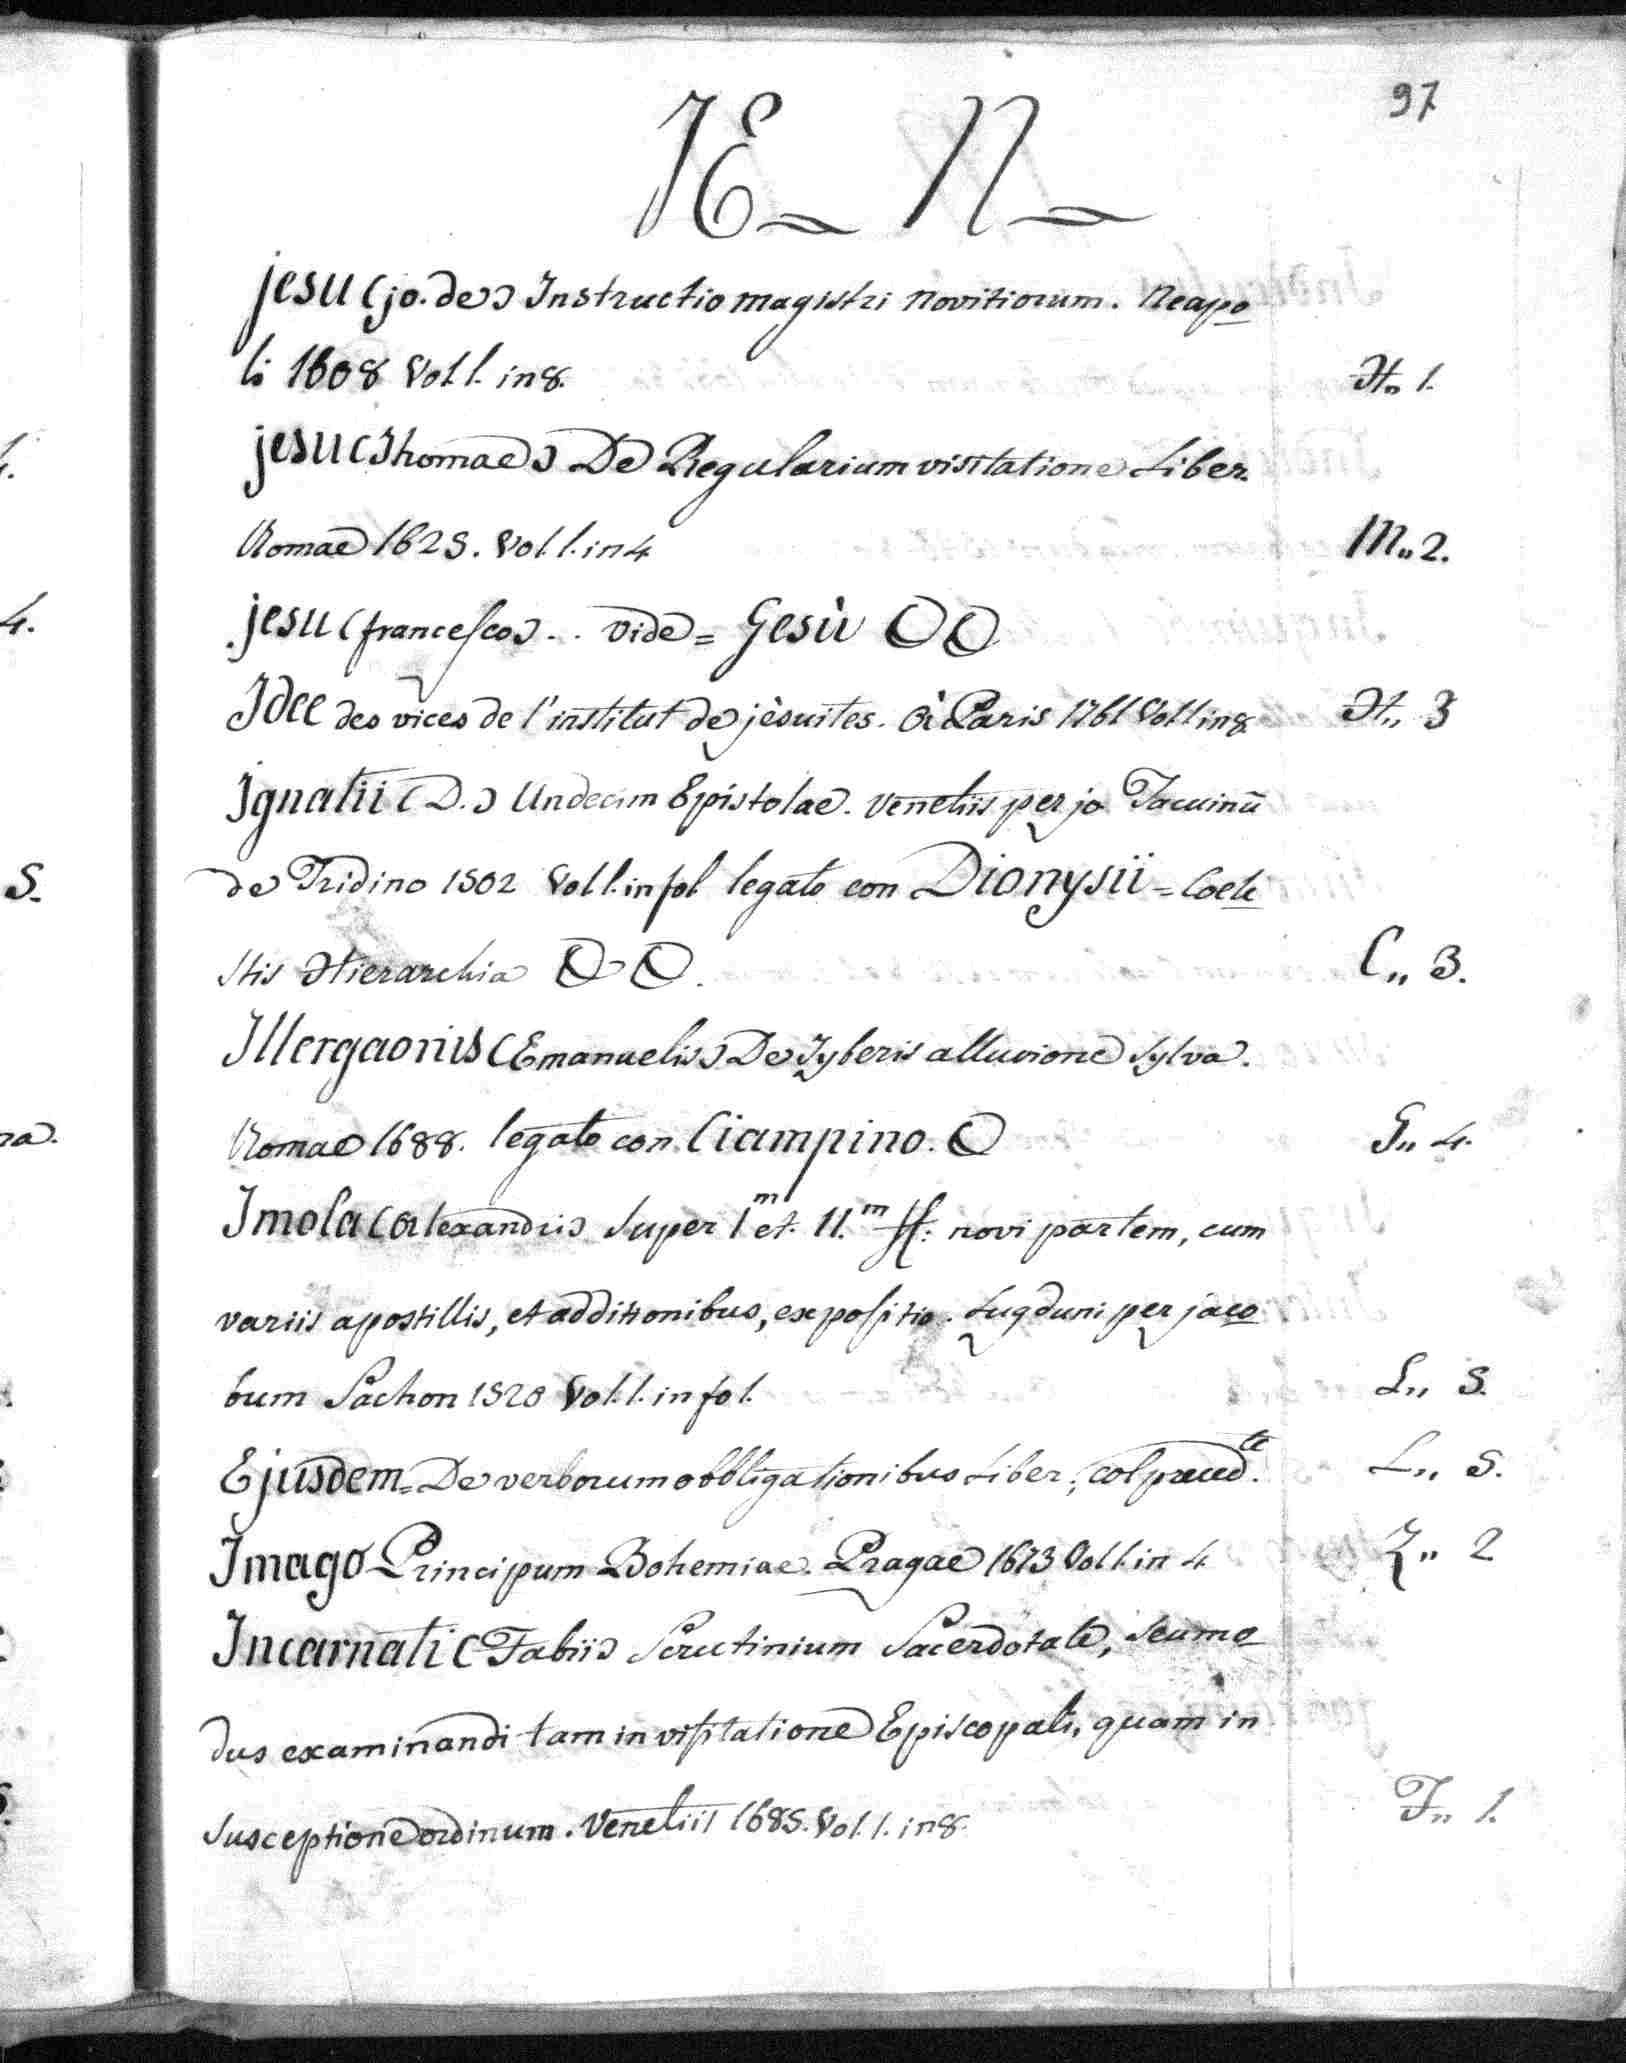 97
JE_ N_
jesu (jo. de) Instructio magistri Novitiorum. Neapo
li 1608 Vol 1. in 8. H,, 1.
jesu (Thomae) De Regularium visitatione Liber.
Romae 1625. Vol. 1. in 4 M,, 2.
jesu (francesco) .. vide = Gesù
Idee des vices de l'institut de jèsuites. à Paris 1761 Vol 1 in 8 H,, 3
Ignatii (D.) Undecim Epistolae. Venetiis per jo Tacuinū
de Tridino 1502 Vol 1. in fol legato con Dionysii = Coele
stis Hierarchia C,, 3.
Illergaonis (Emanuelis) De Tyberis alluvione Sylva.
Romae 1688. legato con Ciampino. G,, 4.
Imola (Alexandri) Super 1m et. 11.m ff: novi partem, cum
variis apostillis, et additionibus, expositio. Lugduni per jaco
bum Sachon 1520 Vol. 1. in fol. L,, 5.
Ejusdem = De verborum obbligationibus Liber; col praecd.te L,, 5.
Imago Principum Bohemiae. Pragae 1673 Vol 1. in 4 Z,, 2
Incarnati (Fabii) Scrutinium Sacerdotale, seu mo
dus examinandi tam in visitatione Episcopali, quam in
susceptione ordinum. Venetiis 1685. Vol. 1. in 8. F,, 1.
4.
5.